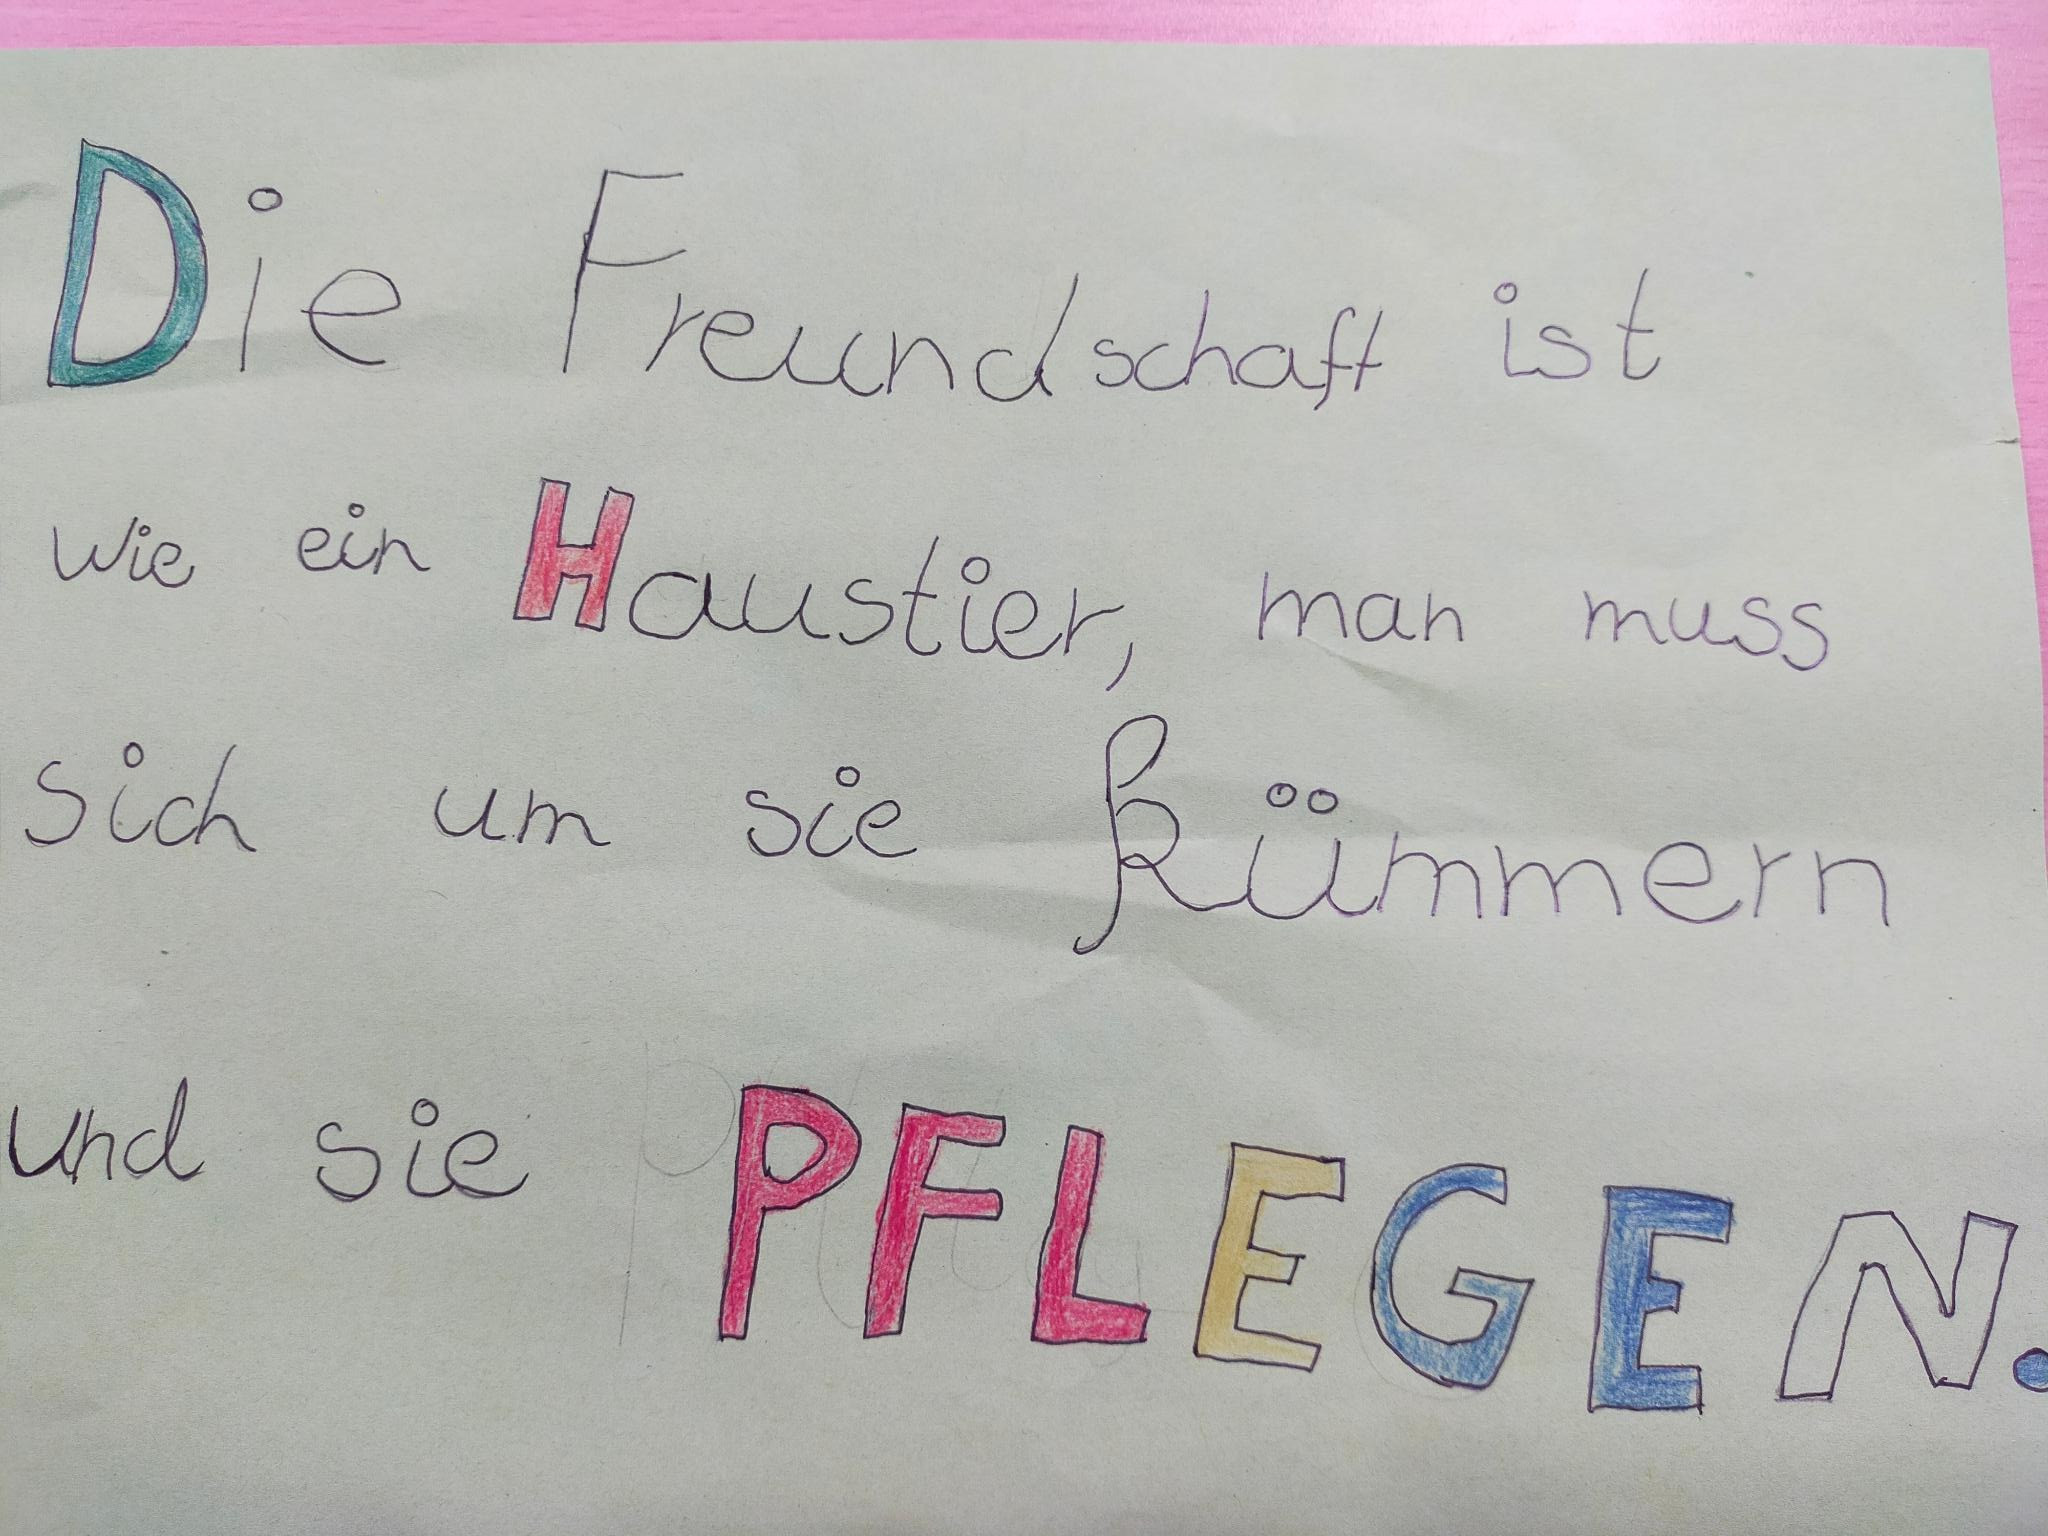 Die Freundschaft ist
wie ein Haustier, man muss
sich um sie kümmern
und sie PFLEGEN.